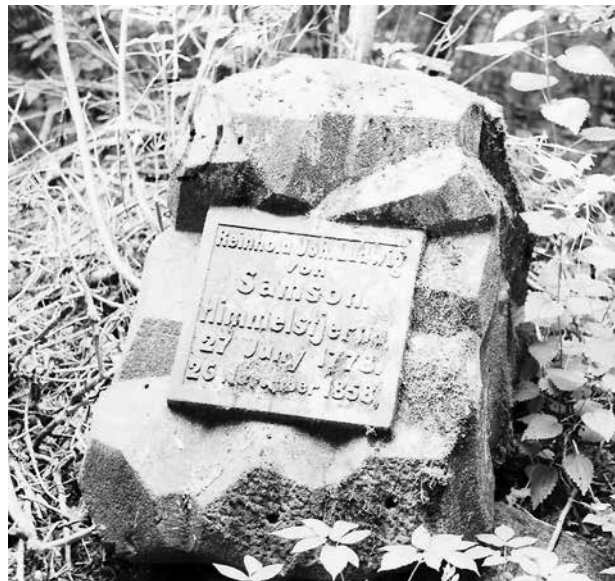 Reinhold Joh. Ludwig
von
Samson
Himmelstjerna
27 Juny 1778.
26 November 1858.